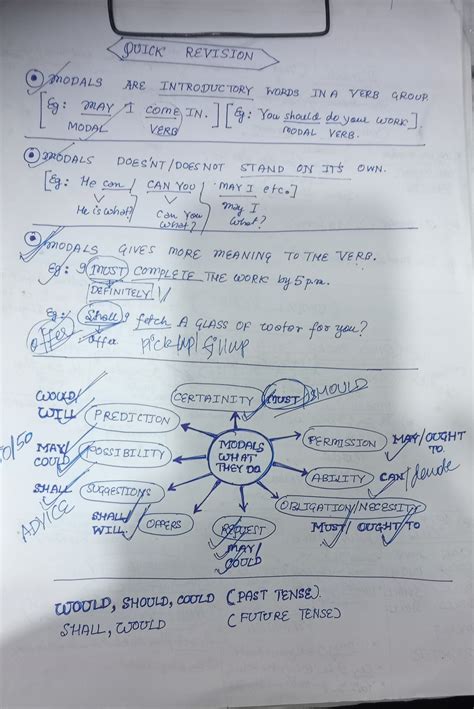 QUICK REVISION
MODALS ARE INTRODUCTORY WORDS IN A VERB GROUP.
[Eg: MAY I come IN.] [Eg: You should do your WORK]
MODAL VERB MODAL VERB.
MODALS DOES'NT/DOES NOT STAND ON IT'S OWN.
[Eg: He can/ CAN YOU/ MAY I etc.]
He is what? Can You What? May I What?
MODALS GIVES MORE MEANING TO THE VERB.
Eg: I MUST COMPLETE THE WORK by 5 p.m.
DEFINITELY
Eg: Shall I fetch A GLASS OF water for you?
Offer Offer Pick up/ fill up
WOULD/ WILL PREDICTION
CERTAINITY MUST/SHOULD
50/50 MAY/ COULD POSSIBILITY
MODALS WHAT THEY DO
PERMISSION MAY/OUGHT TO
SHALL SUGGESTIONS
ADVICE
ABILITY CAN/
SHALL/ WILL OFFERS
REQUEST
MAY/ COULD
OBLIGATION/NECESSITY
MUST/ OUGHT TO
WOULD, SHOULD, COULD (PAST TENSE).
SHALL, WOULD (FUTURE TENSE)